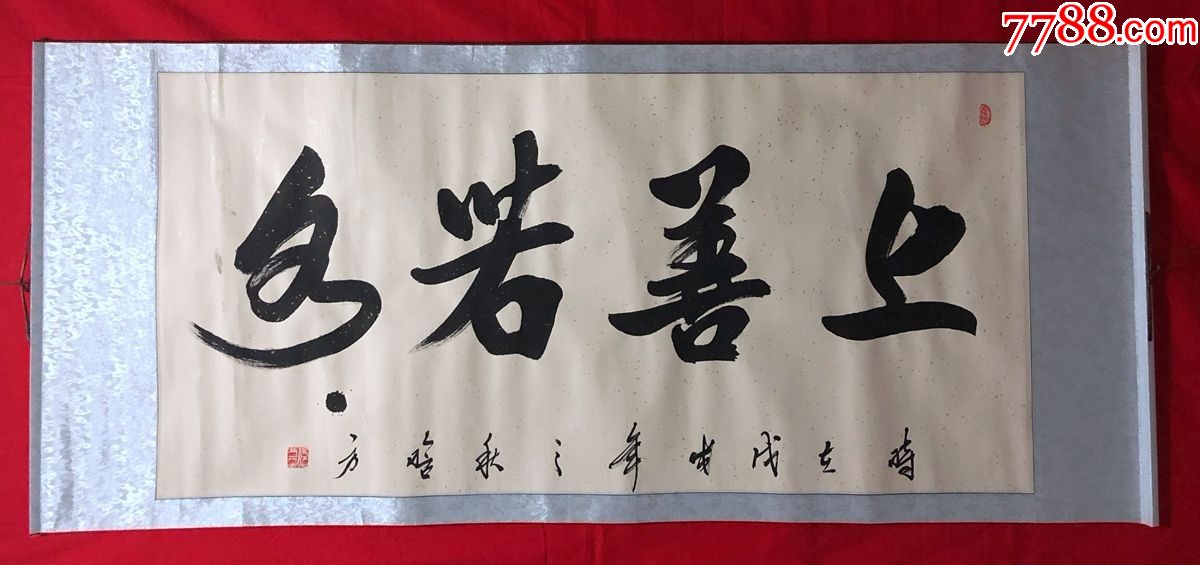 7788.com
上善若水
時在戊戌年之秋